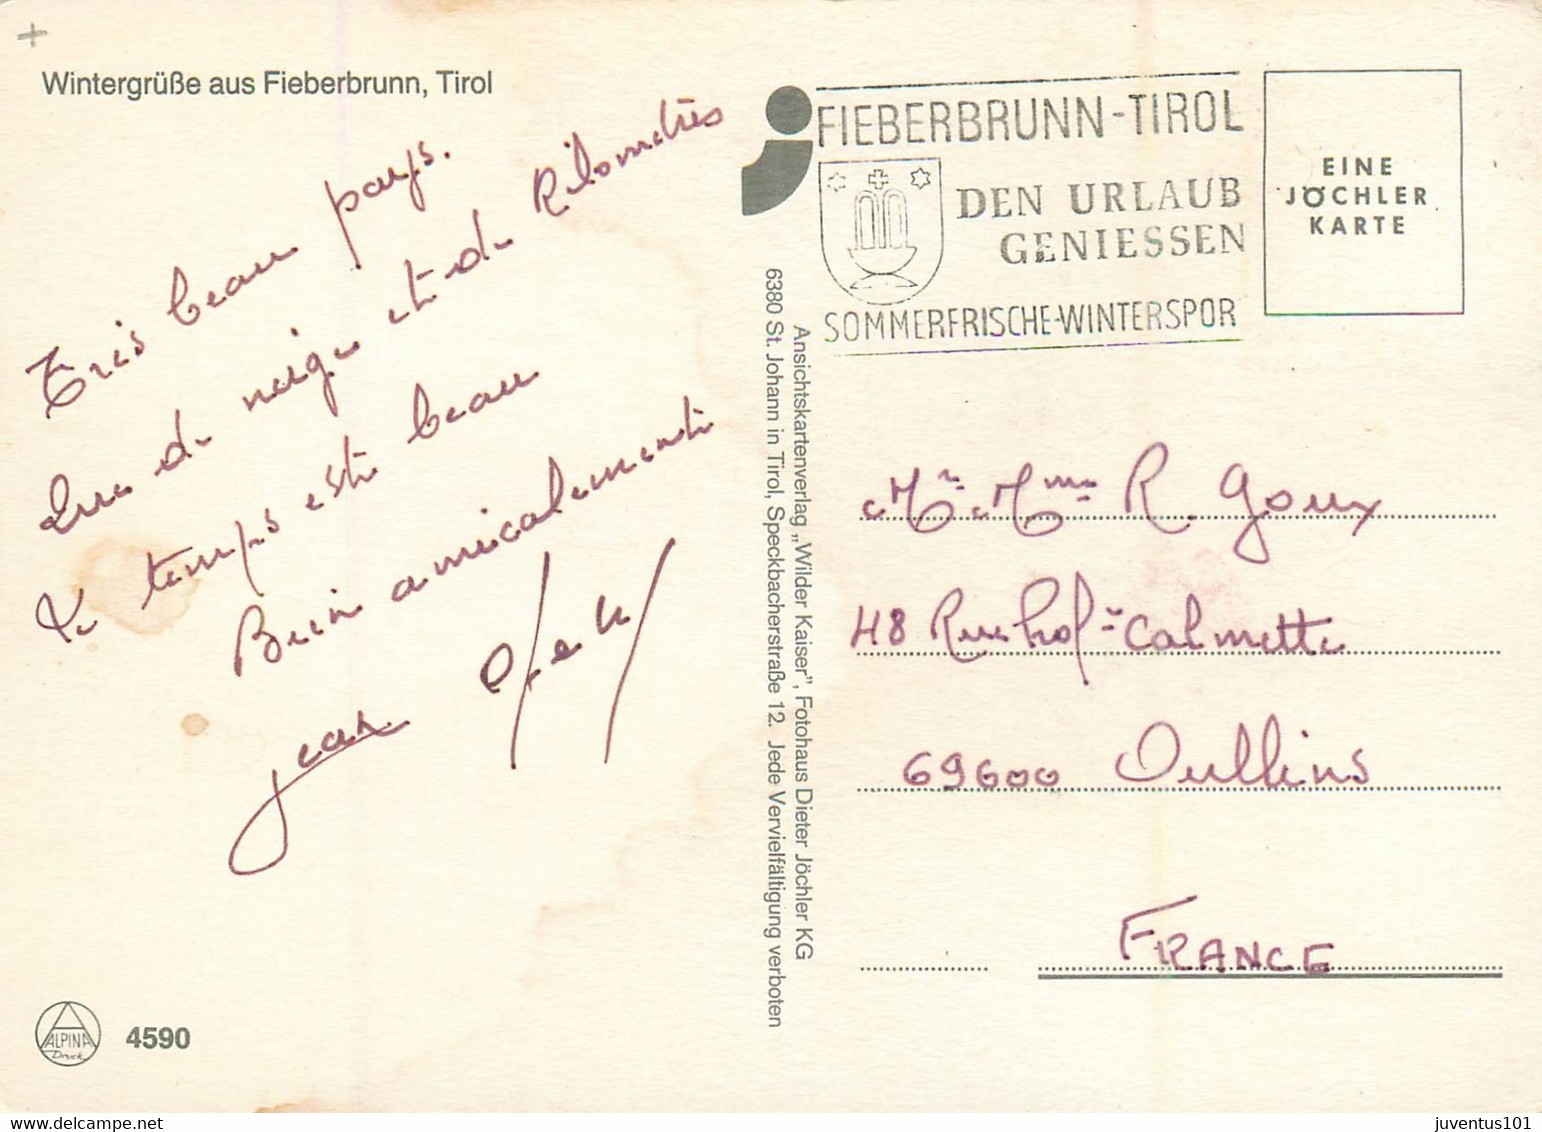 Wintergrüße aus Fieberbrunn, Tirol
Très beau pays.
de neige et de Kilomètres
Le temps est beau
Bien amicalement
Jean
4590
ALPINA
Druck
Ansichtskartenverlag „Wilder Kaiser", Fotohaus Dieter Jöchler KG
6380 St. Johann in Tirol, Speckbacherstraße 12. Jede Vervielfältigung verboten
FIEBERBRUNN-TIROL
DEN URLAUB
GENIESSEN
SOMMERFRISCHE-WINTERSPOR
EINE
JÖCHLER
KARTE
Mr Mme R. Goux
48 Rue Prof-r Calmette
69600 Oullins
FRANCE
juventus101